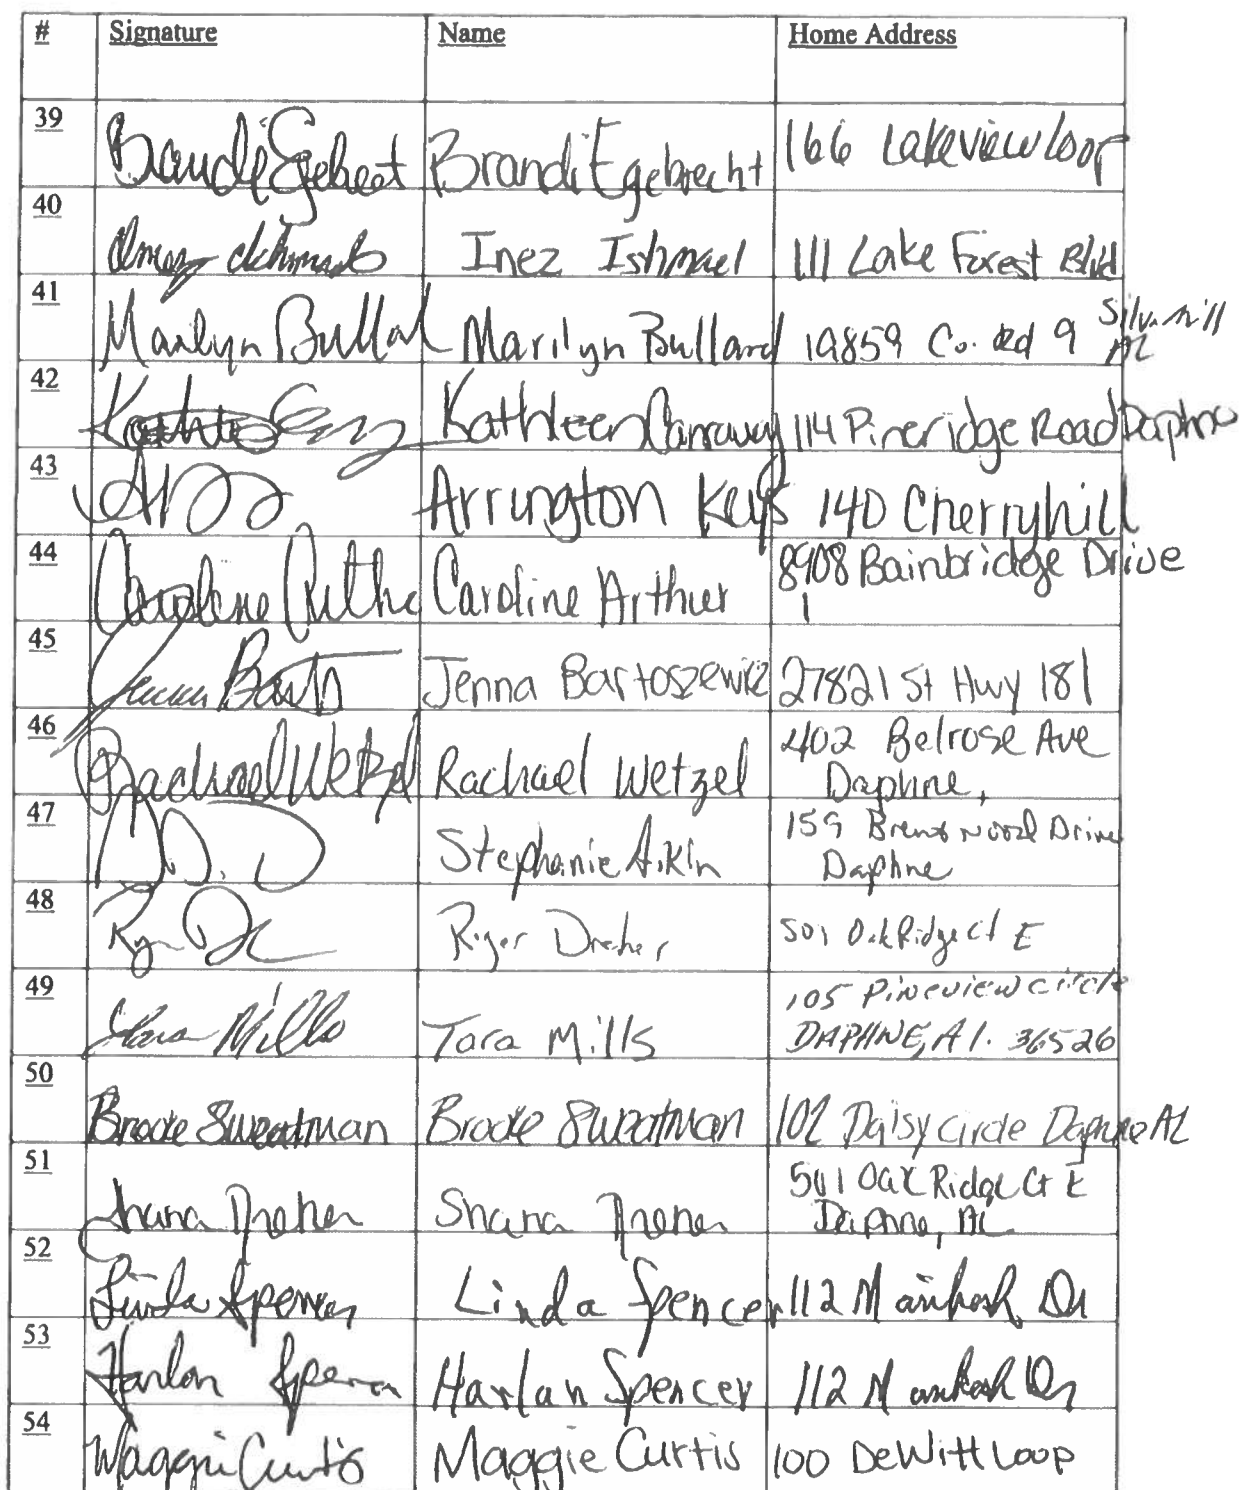 # Signature Name Home Address
39 Brandi Egebrecht Brandi Egebrecht 166 Lakeview Loop
40 Inez Ishmael Inez Ishmael 111 Lake Forest Blvd
41 Marilyn Bullard Marilyn Bullard 19859 Co. Rd 9 Silverhill AL
42 Kathleen Carraway 114 Pineridge Road Daphne
43 Arrington Keys 140 Cherryhill
44 Caroline Arthur Caroline Arthur 8908 Bainbridge Drive
45 Jenna Jenna Bartoszewicz 27821 St Hwy 181
46 Rachael Wetzel Rachael Wetzel 402 Belrose Ave
Daphne,
47 Stephanie Aikin 159 Brentwood Drive
Daphne
48 Roger Dreher 501 Oak Ridge Ct E
49 Tara Mills Tara Mills 105 Pineview Circle
DAPHNE, Al. 36526
50 Brooke Sweatman Brooke Sweatman 102 Daisy Circle Daphne AL
51 Shana Dreher Shana Dreher 501 Oak Ridge Ct E
Daphne, AL
52 Linda Spencer Linda Spencer 112 Dr
53 Harlan Spencer Harlan Spencer 112 Dr
54 Maggie Curtis Maggie Curtis 100 DeWitt Loop